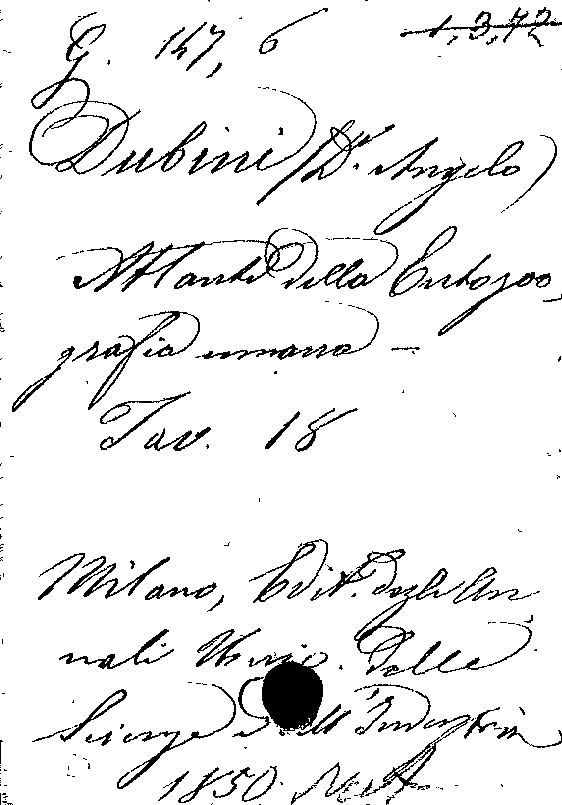 G. 147, 6 1,3,72
Dubini (Dr. Angelo)
Atlante della Entozoo,
grafia umana —
Tav. 18
Milano, Edit. degli An
nali Univ. delle
Scienze e dell'Industria
1850.